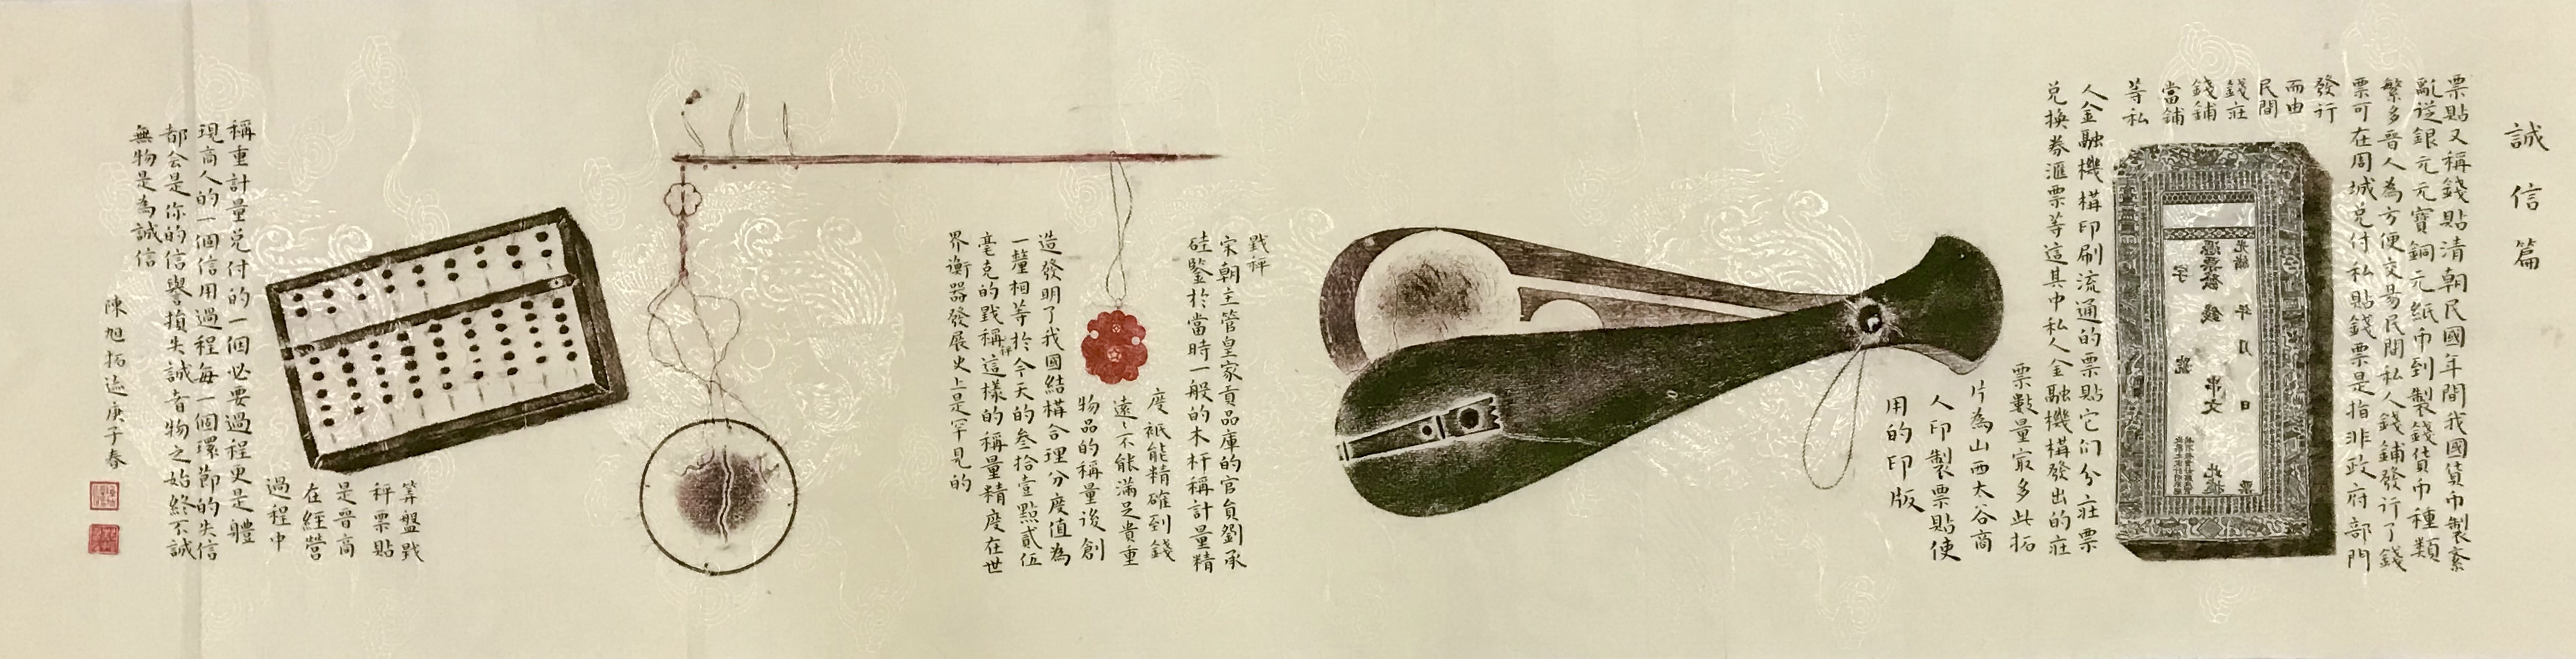 誠信篇
票貼又稱錢貼清朝民國年間我國貨币製紊
亂從銀元元寶銅元紙币到製錢貨币種類
繁多晉人為方便交易民間私人錢鋪發行了錢
票可在周城兑付私貼錢票是指非政府部門
發行
而由
民間
錢莊
錢鋪
當鋪
等私
人金融機構印刷流通的票貼它们分莊票
兑換券滙票等這其中私人金融機構發出的莊
票數量寂多此拓
片為山西太谷商
人印製票貼使
用的印版
光緒 年 月 日 票
憑票發錢 串文 此據
字 號
戥秤
宋朝主管皇家貢品庫的官員劉承
硅鑒於當時一般的木杆稱計量精
度衹能精確到錢
遠〻不能滿足貴重
物品的稱量後創
造發明了我國結構合理分度值為
一釐相等於今天的叁拾壹點貳伍
毫克的戥稱這樣的稱量精度在世
秤
界衡器發展史上是罕見的
筭盤戥
秤票貼
是晉商
在經營
過程中
稱重計量兑付的一個必要過程更是體
現商人的一個信用過程每一個環節的失信
都会是你的信譽損失誠者物之始終不誠
無物是為誠信
陳旭拓 庚子春